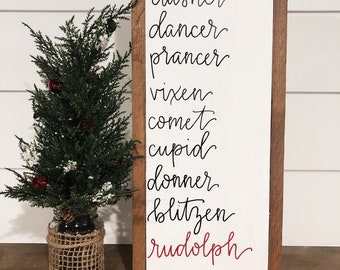 dasher
dancer
prancer
vixen
comet
cupid
donner
blitzen
rudolph